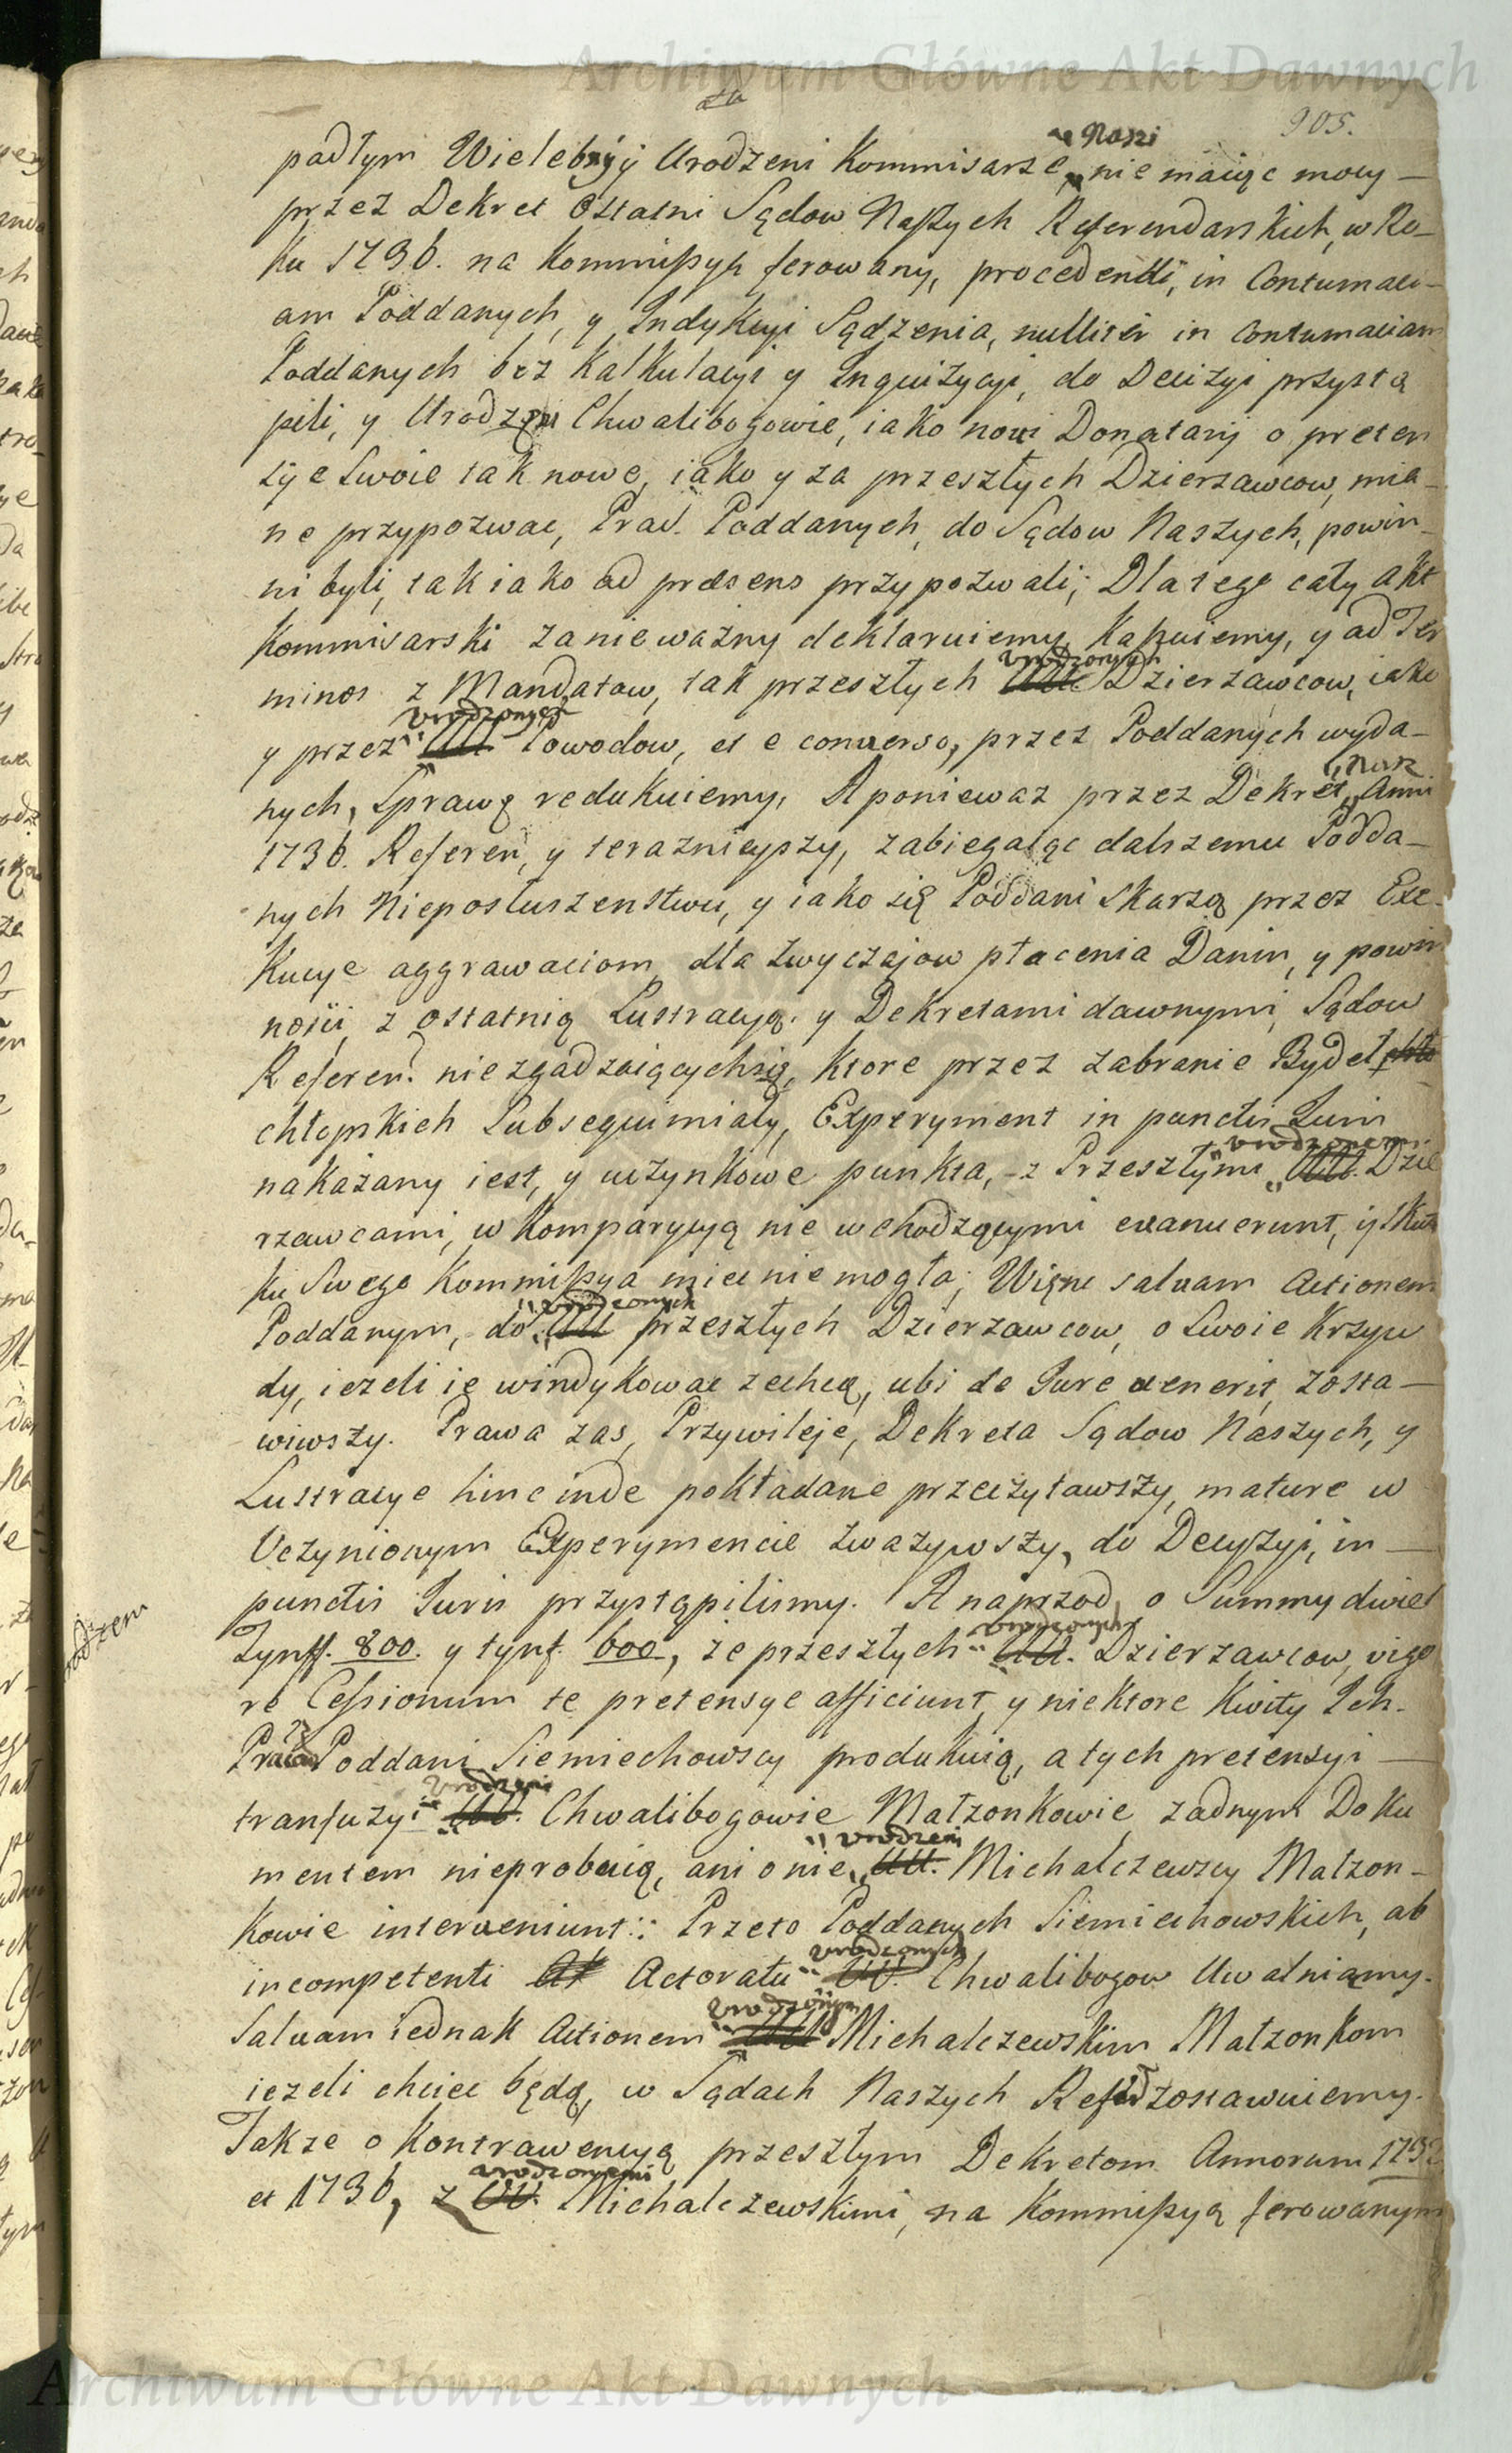 Archiwum Główne Akt Dawnych
905.
Naszi
padłym Wielebny y Urodzeni Kommisarze, nie maiąc mocy —
przez Dekret Ostatni Sądow Naszych Referendarskich, w Ro-
ku 1736. na Kommissyą ferowany, procedendi, in Contumaci-
am Poddanych, y Indykcyi Sądzenia, nulliter in Contumaciam
Poddanych bez Kalkulacyi y Inquizycyi, do Decizyi przystą
pili, y Urodzeni Chwalibogowie, iako nowi Donatarij o preten
sye swoie tak nowe, iako y za przeszłych Dzierzawcow, mia-
ne przypozwac, Prac. Poddanych, do Sądow Naszych, powin-
ni byli, tak iako ad præsens przypozwali; Dla tego cały akt
Kommisarski za nieważny deklaruiemy, Kassuiemy, y ad Ter
urodzonych
minos z Mandatow, tak przeszłych UU. Dzierzawcow, iako
urodzonych
y przez UU Powodow, et e converso, przez Poddanych wyda-
Nasz
nych, Sprawę redukuiemy, A poniewaz przez Dekret, Anni
1736. Referen, y teraznieyszy, zabiegaiąc dalszemu Podda-
nych Nieposłuszenstwu, y iako się Poddani Skarzą przez Exe-
kucye aggrawaciom, dla zwyczajow płacenia Danin, y powin
nosii, z ostatnią Lustracyą. y Dekretami dawnymi, Sądow
Referen. niezgadzaiącychsię, Ktore przez zabranie Bydeł
chłopskich Subsequi miały, Experyment in punctis Juris
urodzonemi
nakazany iest, y uczynkowe punkta, z Przeszłymi UU. Dzie
rzawcami, w Komparycyą nie wchodzącymi evanuerunt, y Skut
ku Swego Kommissya miec nie mogła; Więnc salvam Actionem
urodzonych
Poddanym, do UU przeszłych Dzierzawcow, o Swoie Krzyw
dy, iezeli ię windykowac zechcą, ubi de Jure venerit, zosta—
wiwszy. Prawa zas, Przywileje, Dekreta Sądow Naszych, y
Lustracye hinc inde pokładane przeczytawszy, mature w
Uczynionym Experymencie zwazywszy, do Decyzyi, in —
punctis Juris przystąpilismy. A naprzod, o Summy dwie
urodzonych
Tynff. 800. y tynf. 600, ze przeszłych UU. Dzierzawcow, vigo
re Cessionum te pretensye afficiunt, y niektore Kwity Ich.
Prac Poddani Siemiechowscy produkuią, a tych pretensyi —
urodzeni
transfuzyi UU. Chwalibogowie Małzonkowie, zadnym Doku
urodzeni
mentem nieprobuią, ani o nie, UU. Michalczewscy Małzon-
kowie interveniunt: Przeto Poddanych Siemiechowskich, ab
urodzonych
incompetenti Actoratu UU. Chwalibogow Uwalniamy.
urodzonym
Salvam iednak Actionem UU Michalczewskim Małzonkom
iezeli chciec będą, w Sądach Naszych Refer zostawuiemy.
Takze o Kontrawencyą przeszłym Dekretom Annorum 1732
urodzonymi
et 1736, z UU. Michalczewskimi, na Kommissyą ferowanym
Archiwum Główne Akt Dawnych